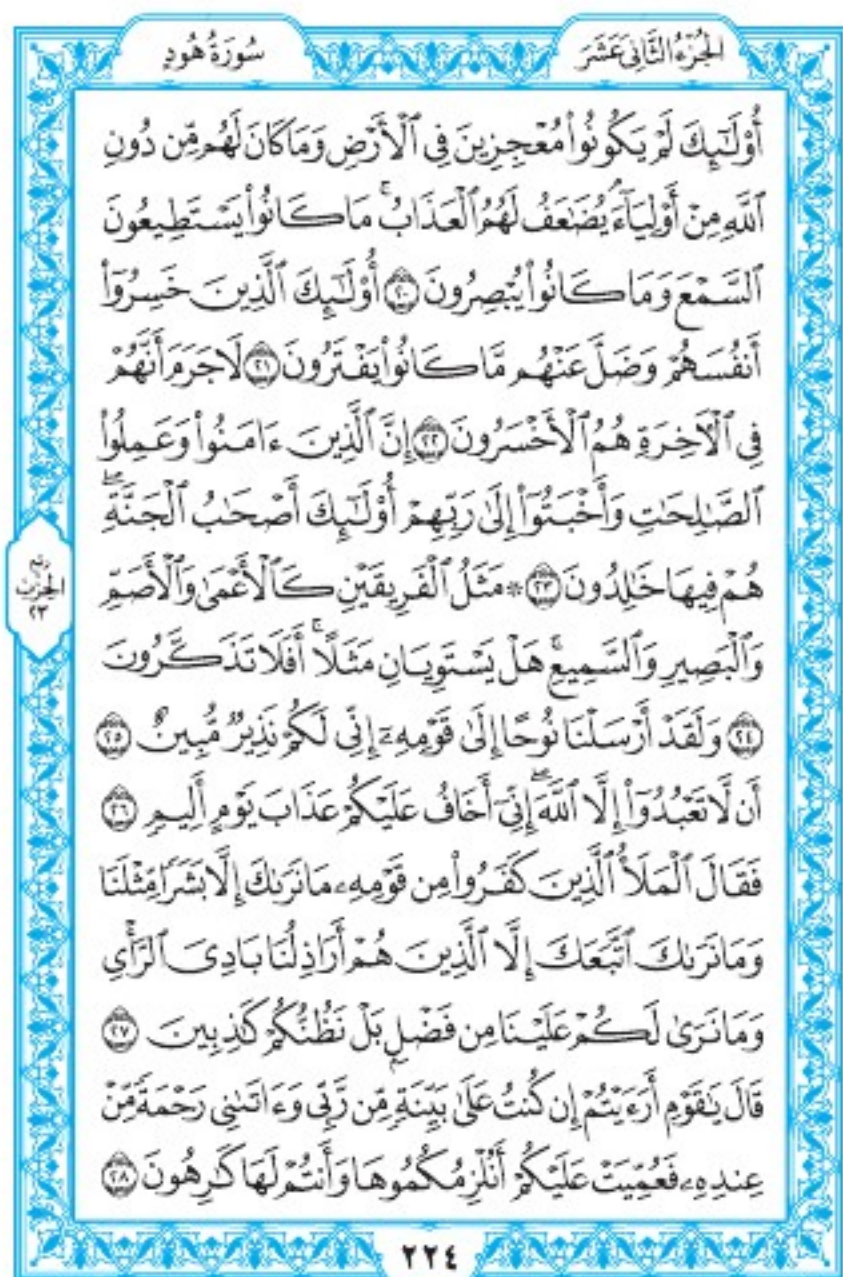 الجُزْءُ الثَّانِي عَشَرَ
سُورَةُ هُودٍ
أُوْلَٰٓئِكَ لَمْ يَكُونُواْ مُعْجِزِينَ فِي ٱلْأَرْضِ وَمَا كَانَ لَهُم مِّن دُونِ
ٱللَّهِ مِنْ أَوْلِيَآءَۘ يُضَٰعَفُ لَهُمُ ٱلْعَذَابُۚ مَا كَانُواْ يَسْتَطِيعُونَ
ٱلسَّمْعَ وَمَا كَانُواْ يُبْصِرُونَ ٢٠ أُوْلَٰٓئِكَ ٱلَّذِينَ خَسِرُوٓاْ
أَنفُسَهُمْ وَضَلَّ عَنْهُم مَّا كَانُواْ يَفْتَرُونَ ٢١ لَا جَرَمَ أَنَّهُمْ
فِي ٱلْأٓخِرَةِ هُمُ ٱلْأَخْسَرُونَ ٢٢ إِنَّ ٱلَّذِينَ ءَامَنُواْ وَعَمِلُواْ
ٱلصَّٰلِحَٰتِ وَأَخْبَتُوٓاْ إِلَىٰ رَبِّهِمْ أُوْلَٰٓئِكَ أَصْحَٰبُ ٱلْجَنَّةِۖ
هُمْ فِيهَا خَٰلِدُونَ ٢٣ ۞ مَثَلُ ٱلْفَرِيقَيْنِ كَٱلْأَعْمَىٰ وَٱلْأَصَمِّ
رُبْع
الحِزْب
٢٣
وَٱلْبَصِيرِ وَٱلسَّمِيعِۚ هَلْ يَسْتَوِيَانِ مَثَلًاۚ أَفَلَا تَذَكَّرُونَ
٢٤ وَلَقَدْ أَرْسَلْنَا نُوحًا إِلَىٰ قَوْمِهِۦٓ إِنِّي لَكُمْ نَذِيرٌ مُّبِينٌ ٢٥
أَن لَّا تَعْبُدُوٓاْ إِلَّا ٱللَّهَۖ إِنِّيٓ أَخَافُ عَلَيْكُمْ عَذَابَ يَوْمٍ أَلِيمٍ ٢٦
فَقَالَ ٱلْمَلَأُ ٱلَّذِينَ كَفَرُواْ مِن قَوْمِهِۦ مَا نَرَىٰكَ إِلَّا بَشَرًا مِّثْلَنَا
وَمَا نَرَىٰكَ ٱتَّبَعَكَ إِلَّا ٱلَّذِينَ هُمْ أَرَاذِلُنَا بَادِيَ ٱلرَّأْيِ
وَمَا نَرَىٰ لَكُمْ عَلَيْنَا مِن فَضْلِۭ بَلْ نَظُنُّكُمْ كَٰذِبِينَ ٢٧
قَالَ يَٰقَوْمِ أَرَءَيْتُمْ إِن كُنتُ عَلَىٰ بَيِّنَةٍ مِّن رَّبِّي وَءَاتَىٰنِي رَحْمَةً مِّنْ
عِندِهِۦ فَعُمِّيَتْ عَلَيْكُمْ أَنُلْزِمُكُمُوهَا وَأَنتُمْ لَهَا كَٰرِهُونَ ٢٨
٢٢٤